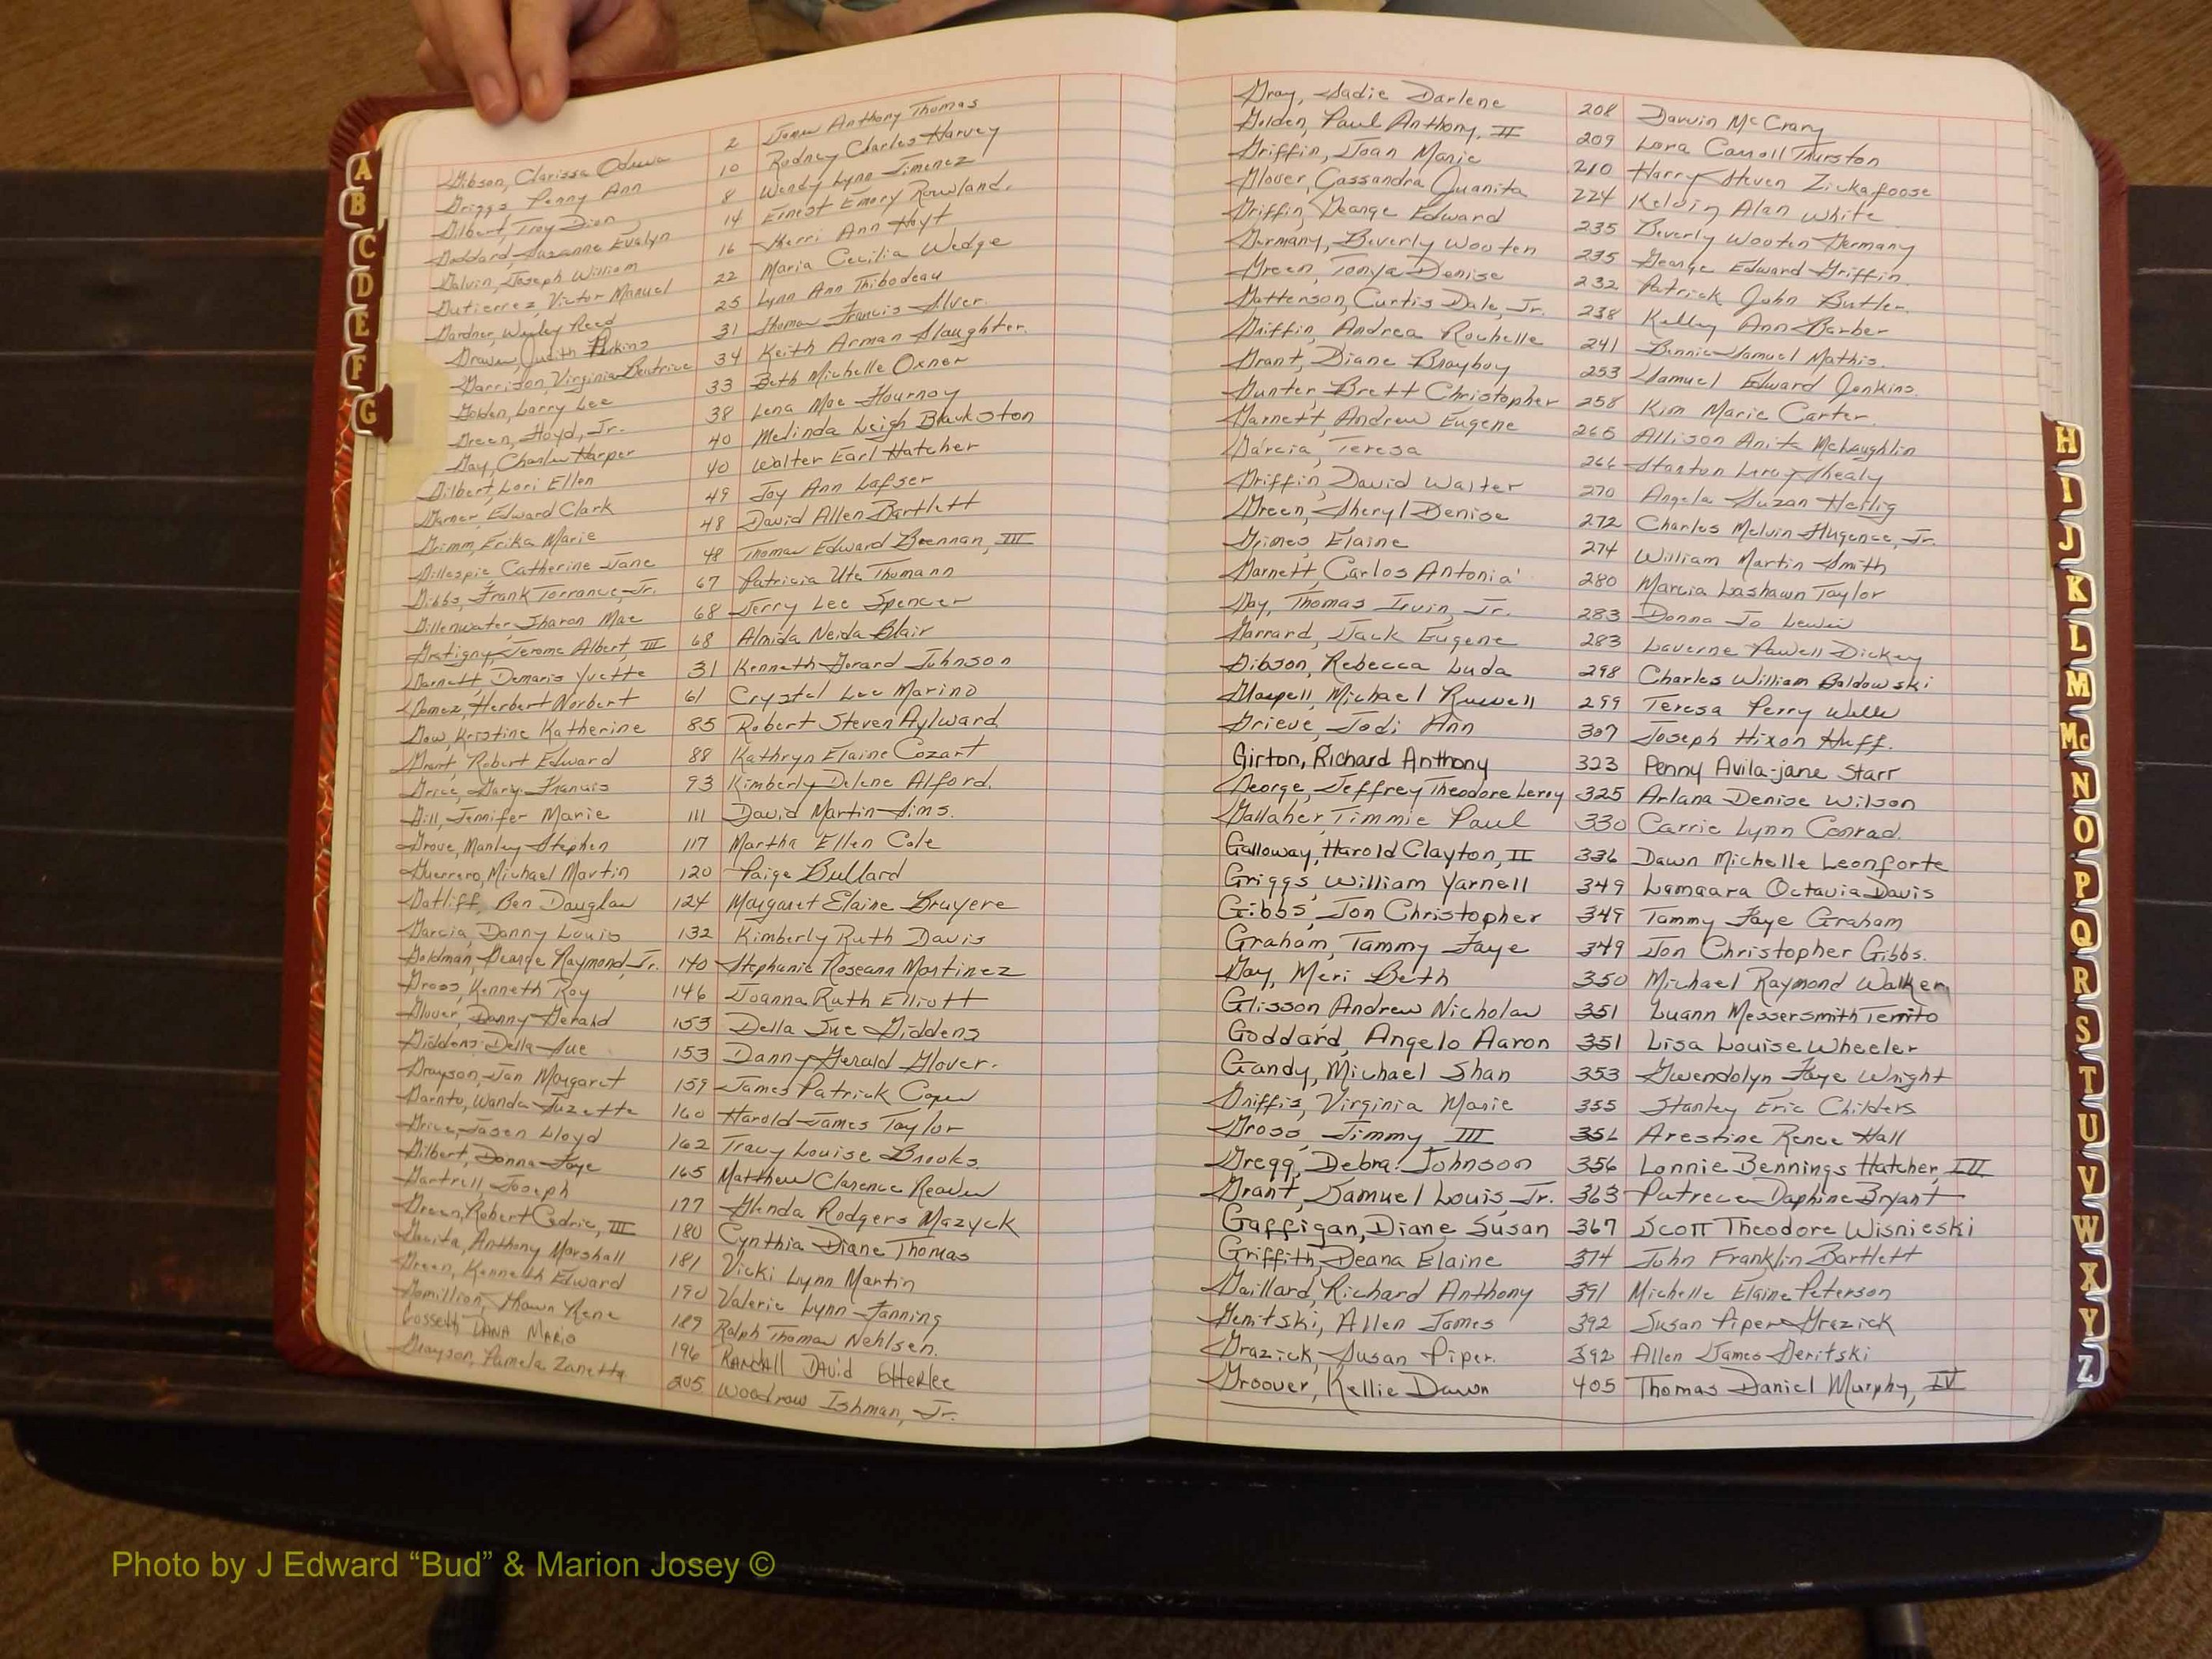 A
B
C
D
E
F
G
Gibson, Clarissa 2 James Anthony Thomas
Griggs Penny Ann 10 Rodney Charles Harvey
Gilbert, Troy Dion 8 Wendy Lynn Jimenez
Goddard, Suzanne Evelyn 14 Ernest Emory Rowland.
Galvin, Joseph William 16 Sherri Ann Hoyt
Gutierrez, Victor Manuel 22 Maria Cecilia Wedge
Gardner, Wesley Reed 25 Lynn Ann Thibodeau
Judith 31 Thomas Francis Alver.
Garrison, Virginia Beatrice 34 Keith Arman Slaughter.
Golden, Larry Lee 33 Beth Michelle Oxner
Green, Floyd, Jr. 38 Lena Mae Flournoy
Gay, Charles Harper 40 Melinda Leigh Blackston
Gilbert, Lori Ellen 40 Walter Earl Hatcher
Garner, Edward Clark 49 Joy Ann Lafser
Grimm, Erika Marie 48 David Allen Bartlett
Gillespie Catherine Jane 48 Thomas Edward Brennan, III
Gibbs, Frank Torrance, Jr. 67 Patricia Ute Thumann
Gillenwater, Sharon Mae 68 Jerry Lee Spencer
Gratigny, Jerome Albert, III 68 Almida Neida Blair
Garnett Demaris Yvette 31 Kenneth Gerard Johnson
Gomez, Herbert Norbert 61 Crystal Lee Marino
Gow, Kristine Katherine 85 Robert Steven Aylward
Grant, Robert Edward 88 Kathryn Elaine Cozart
Grice, Gary Francis 93 Kimberly Delene Alford.
Gill, Jennifer Marie 111 David Martin Sims.
Grove, Manley Stephen 117 Martha Ellen Cole
Guerrero, Michael Martin 120 Paige Bullard
Gatliff, Ben Douglas 124 Margaret Elaine Bruyere
Garcia, Danny Louis 132 Kimberly Ruth Davis
Goldman, George Raymond, Jr. 140 Stephanie Roseann Martinez
Gross, Kenneth Roy 146 Joanna Ruth Elliott
Glover, Danny Gerald 153 Della Sue Giddens
Giddens Della Sue 153 Danny Gerald Glover.
Grayson, Jan Margaret 159 James Patrick Copes
Garnto, Wanda Suzette 160 Harold James Taylor
Grice, Jason Lloyd 162 Tracy Louise Brooks.
Gilbert, Donna Faye 165 Matthew Clarence Reaves
Gartrell, Joseph 177 Glenda Rodgers Mazyck
Green, Robert Cedric, III 180 Cynthia Diane Thomas
Anthony Marshall 181 Vicki Lynn Martin
Green, Kenneth Edward 190 Valerie Lynn Fanning
Gomillion, Shawn Rene 189 Ralph Thomas Nehlsen.
Gosseth DANA MARIO 196 RANDALL DAVID
Grayson, Pamela Zanetta 205 Woodrow Ishman, Jr.
Gray, Sadie Darlene 208 Darwin McCrary
Golden, Paul Anthony, II 209 Lora Carroll Thurston
Griffin, Joan Marie 210 Harry Steven Zickafoose
Glover, Cassandra Juanita 224 Kelvin Alan White
Griffin, George Edward 235 Beverly Wooten Germany
Germany, Beverly Wooten 235 George Edward Griffin.
Green, Tonya Denise 232 Patrick John Butler.
Gatterson, Curtis Dale, Jr. 238 Kelley Ann Barber
Griffin, Andrea Rochelle 241 Bennie Samuel Mathis.
Grant, Diane Brayboy 253 Samuel Edward Jenkins.
Gunter, Brett Christopher 258 Kim Marie Carter.
Garnett, Andrew Eugene 265 Allison Anita McLaughlin
Garcia, Teresa 266 Stanton Leroy Shealy
Griffin, David Walter 270 Angela Suzan Heilig
Green, Sheryl Denise 272 Charles Melvin Hugence, Jr.
Grimes, Elaine 274 William Martin Smith
Garnett, Carlos Antonia 280 Marcia Lashawn Taylor
Gay, Thomas Irvin, Jr. 283 Donna Jo Lewis
Garrard, Jack Eugene 283 Laverne Powell Dickey
Gibson, Rebecca Luda 298 Charles William Baldowski
Glaspell, Michael Russell 299 Teresa Perry Wells
Grieve, Jodi Ann 307 Joseph Hixon Huff.
Girton, Richard Anthony 323 Penny Avila-jane Starr
George, Jeffrey Theodore Leroy 325 Arlana Denise Wilson
Gallaher, Timmie Paul 330 Carrie Lynn Conrad.
Galloway, Harold Clayton, II 336 Dawn Michelle Leonforte
Griggs, William Yarnell 349 Lamaara Octavia Davis
Gibbs, Jon Christopher 349 Tammy Faye Graham
Graham, Tammy Faye 349 Jon Christopher Gibbs.
Gay, Meri Beth 350 Michael Raymond Walker
Glisson Andrew Nicholas 351 Luann Messersmith
Goddard, Angelo Aaron 351 Lisa Louise Wheeler
Gandy, Michael Shan 353 Gwendolyn Faye Wright
Griffis, Virginia Marie 355 Stanley Eric Childers
Gross, Jimmy, III 356 Arestine Renee Hall
Gregg, Debra Johnson 356 Lonnie Bennings Hatcher, III
Grant, Samuel Louis, Jr. 363 Patrece Daphine Bryant
Gaffigan, Diane Susan 367 Scott Theodore Wisnieski
Griffith, Deana Elaine 374 John Franklin Bartlett
Gaillard, Richard Anthony 391 Michelle Elaine Peterson
Geritski, Allen James 392 Susan Piper Grazick
Grazick, Susan Piper. 392 Allen James Geritski
Groover, Kellie Dawn 405 Thomas Daniel Murphy, IV
H
I
J
K
L
M
Mc
N
O
P
Q
R
S
T
U
V
W
X
Y
Z
Photo by J Edward “Bud” & Marion Josey ©